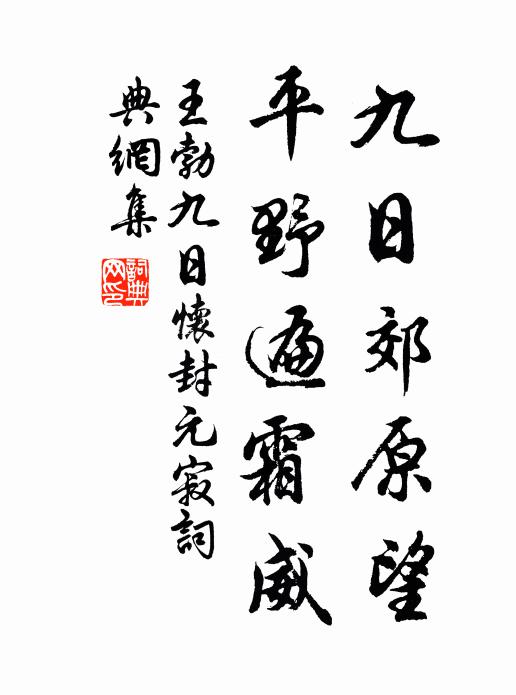 九日郊原望
平野遍霜威
王勃九日懷封元寂詞
典網集
詞典
网印